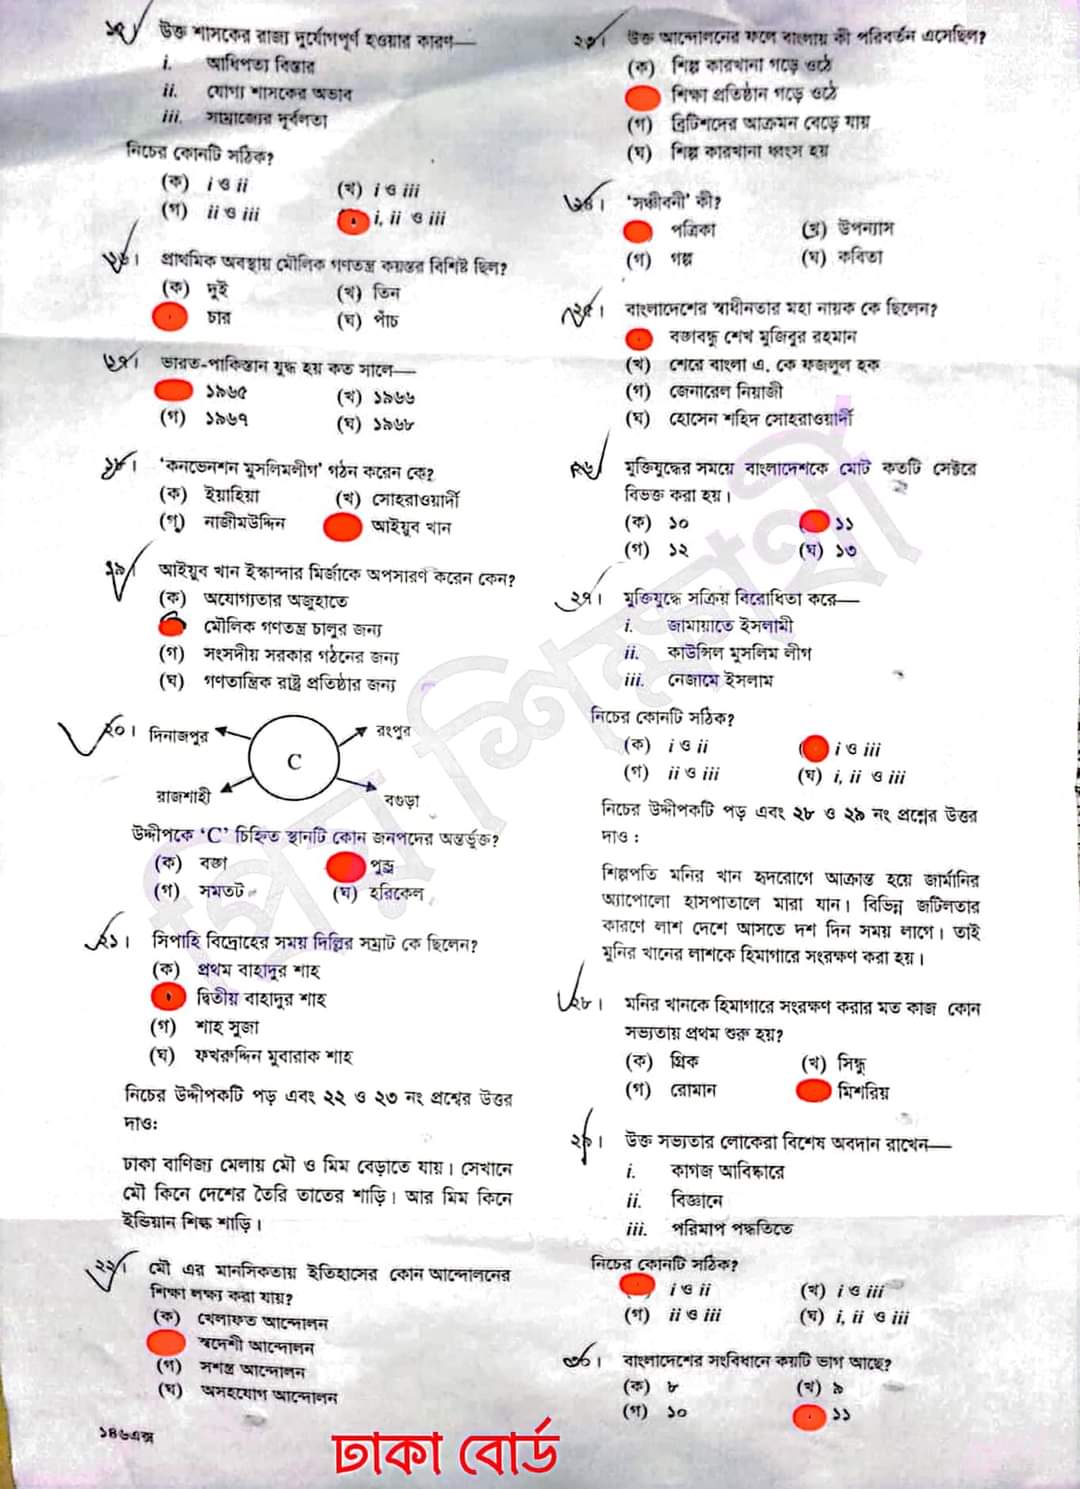 ১৫। উক্ত শাসকের রাজ্য দুর্যোগপূর্ণ হওয়ার কারণ—
i. আধিপত্য বিস্তার
ii. যোগ্য শাসকের অভাব
iii. সাম্রাজ্যের দূর্বলতা
নিচের কোনটি সঠিক?
(ক) i ও ii (খ) i ও iii
(গ) ii ও iii i, ii ও iii
১৬। প্রাথমিক অবস্থায় মৌলিক গণতন্ত্র কয়স্তর বিশিষ্ট ছিল?
(ক) দুই (খ) তিন
চার (ঘ) পাঁচ
১৭। ভারত-পাকিস্তান যুদ্ধ হয় কত সালে—
১৯৬৫ (খ) ১৯৬৬
(গ) ১৯৬৭ (ঘ) ১৯৬৮
১৮। ‘কনভেনশন মুসলিমলীগ’ গঠন করেন কে?
(ক) ইয়াহিয়া (খ) সোহরাওয়ার্দী
(গ) নাজীমউদ্দিন আইয়ুব খান
১৯। আইয়ুব খান ইস্কান্দার মির্জাকে অপসারণ করেন কেন?
(ক) অযোগ্যতার অজুহাতে
মৌলিক গণতন্ত্র চালুর জন্য
(গ) সংসদীয় সরকার গঠনের জন্য
(ঘ) গণতান্ত্রিক রাষ্ট্র প্রতিষ্ঠার জন্য
২০। দিনাজপুর রংপুর
C
রাজশাহী বগুড়া
উদ্দীপকে ‘C’ চিহ্নিত স্থানটি কোন জনপদের অন্তর্ভুক্ত?
(ক) বঙ্গ পুন্ড্র
(গ) সমতট (ঘ) হরিকেল
২১। সিপাহি বিদ্রোহের সময় দিল্লির সম্রাট কে ছিলেন?
(ক) প্রথম বাহাদুর শাহ
দ্বিতীয় বাহাদুর শাহ
(গ) শাহ সুজা
(ঘ) ফখরুদ্দিন মুবারাক শাহ
নিচের উদ্দীপকটি পড় এবং ২২ ও ২৩ নং প্রশ্নের উত্তর
দাও:
ঢাকা বাণিজ্য মেলায় মৌ ও মিম বেড়াতে যায়। সেখানে
মৌ কিনে দেশের তৈরি তাতের শাড়ি। আর মিম কিনে
ইন্ডিয়ান শিল্ক শাড়ি।
২২। মৌ এর মানসিকতায় ইতিহাসের কোন আন্দোলনের
শিক্ষা লক্ষ্য করা যায়?
(ক) খেলাফত আন্দোলন
স্বদেশী আন্দোলন
(গ) সশস্ত্র আন্দোলন
(ঘ) অসহযোগ আন্দোলন
১৪৬এক্স
২৩। উক্ত আন্দোলনের ফলে বাংলায় কী পরিবর্তন এসেছিল?
(ক) শিল্প কারখানা গড়ে ওঠে
শিক্ষা প্রতিষ্ঠান গড়ে ওঠে
(গ) ব্রিটিশদের আক্রমন বেড়ে যায়
(ঘ) শিল্প কারখানা ধ্বংস হয়
২৪। ‘সঞ্জীবনী’ কী?
পত্রিকা (খ) উপন্যাস
(গ) গল্প (ঘ) কবিতা
২৫। বাংলাদেশের স্বাধীনতার মহা নায়ক কে ছিলেন?
বঙ্গবন্ধু শেখ মুজিবুর রহমান
(খ) শেরে বাংলা এ. কে ফজলুল হক
(গ) জেনারেল নিয়াজী
(ঘ) হোসেন শহিদ সোহরাওয়ার্দী
২৬। মুক্তিযুদ্ধের সময়ে বাংলাদেশকে মোট কতটি সেক্টরে
বিভক্ত করা হয়।
(ক) ১০ ১১
(গ) ১২ (ঘ) ১৩
২৭। মুক্তিযুদ্ধে সক্রিয় বিরোধিতা করে—
i. জামায়াতে ইসলামী
ii. কাউন্সিল মুসলিম লীগ
iii. নেজামে ইসলাম
নিচের কোনটি সঠিক?
(ক) i ও ii i ও iii
(গ) ii ও iii (ঘ) i, ii ও iii
নিচের উদ্দীপকটি পড় এবং ২৮ ও ২৯ নং প্রশ্নের উত্তর
দাও :
শিল্পপতি মনির খান হৃদরোগে আক্রান্ত হয়ে জার্মানির
অ্যাপোলো হাসপাতালে মারা যান। বিভিন্ন জটিলতার
কারণে লাশ দেশে আসতে দশ দিন সময় লাগে। তাই
মুনির খানের লাশকে হিমাগারে সংরক্ষণ করা হয়।
২৮। মনির খানকে হিমাগারে সংরক্ষণ করার মত কাজ কোন
সভ্যতায় প্রথম শুরু হয়?
(ক) গ্রিক (খ) সিন্ধু
(গ) রোমান মিশরিয়
২৯। উক্ত সভ্যতার লোকেরা বিশেষ অবদান রাখেন—
i. কাগজ আবিষ্কারে
ii. বিজ্ঞানে
iii. পরিমাপ পদ্ধতিতে
নিচের কোনটি সঠিক?
i ও ii (খ) i ও iii
(গ) ii ও iii (ঘ) i, ii ও iii
৩০। বাংলাদেশের সংবিধানে কয়টি ভাগ আছে?
(ক) ৮ (খ) ৯
(গ) ১০ ১১
ঢাকা বোর্ড
প্রিয় শিক্ষার্থী